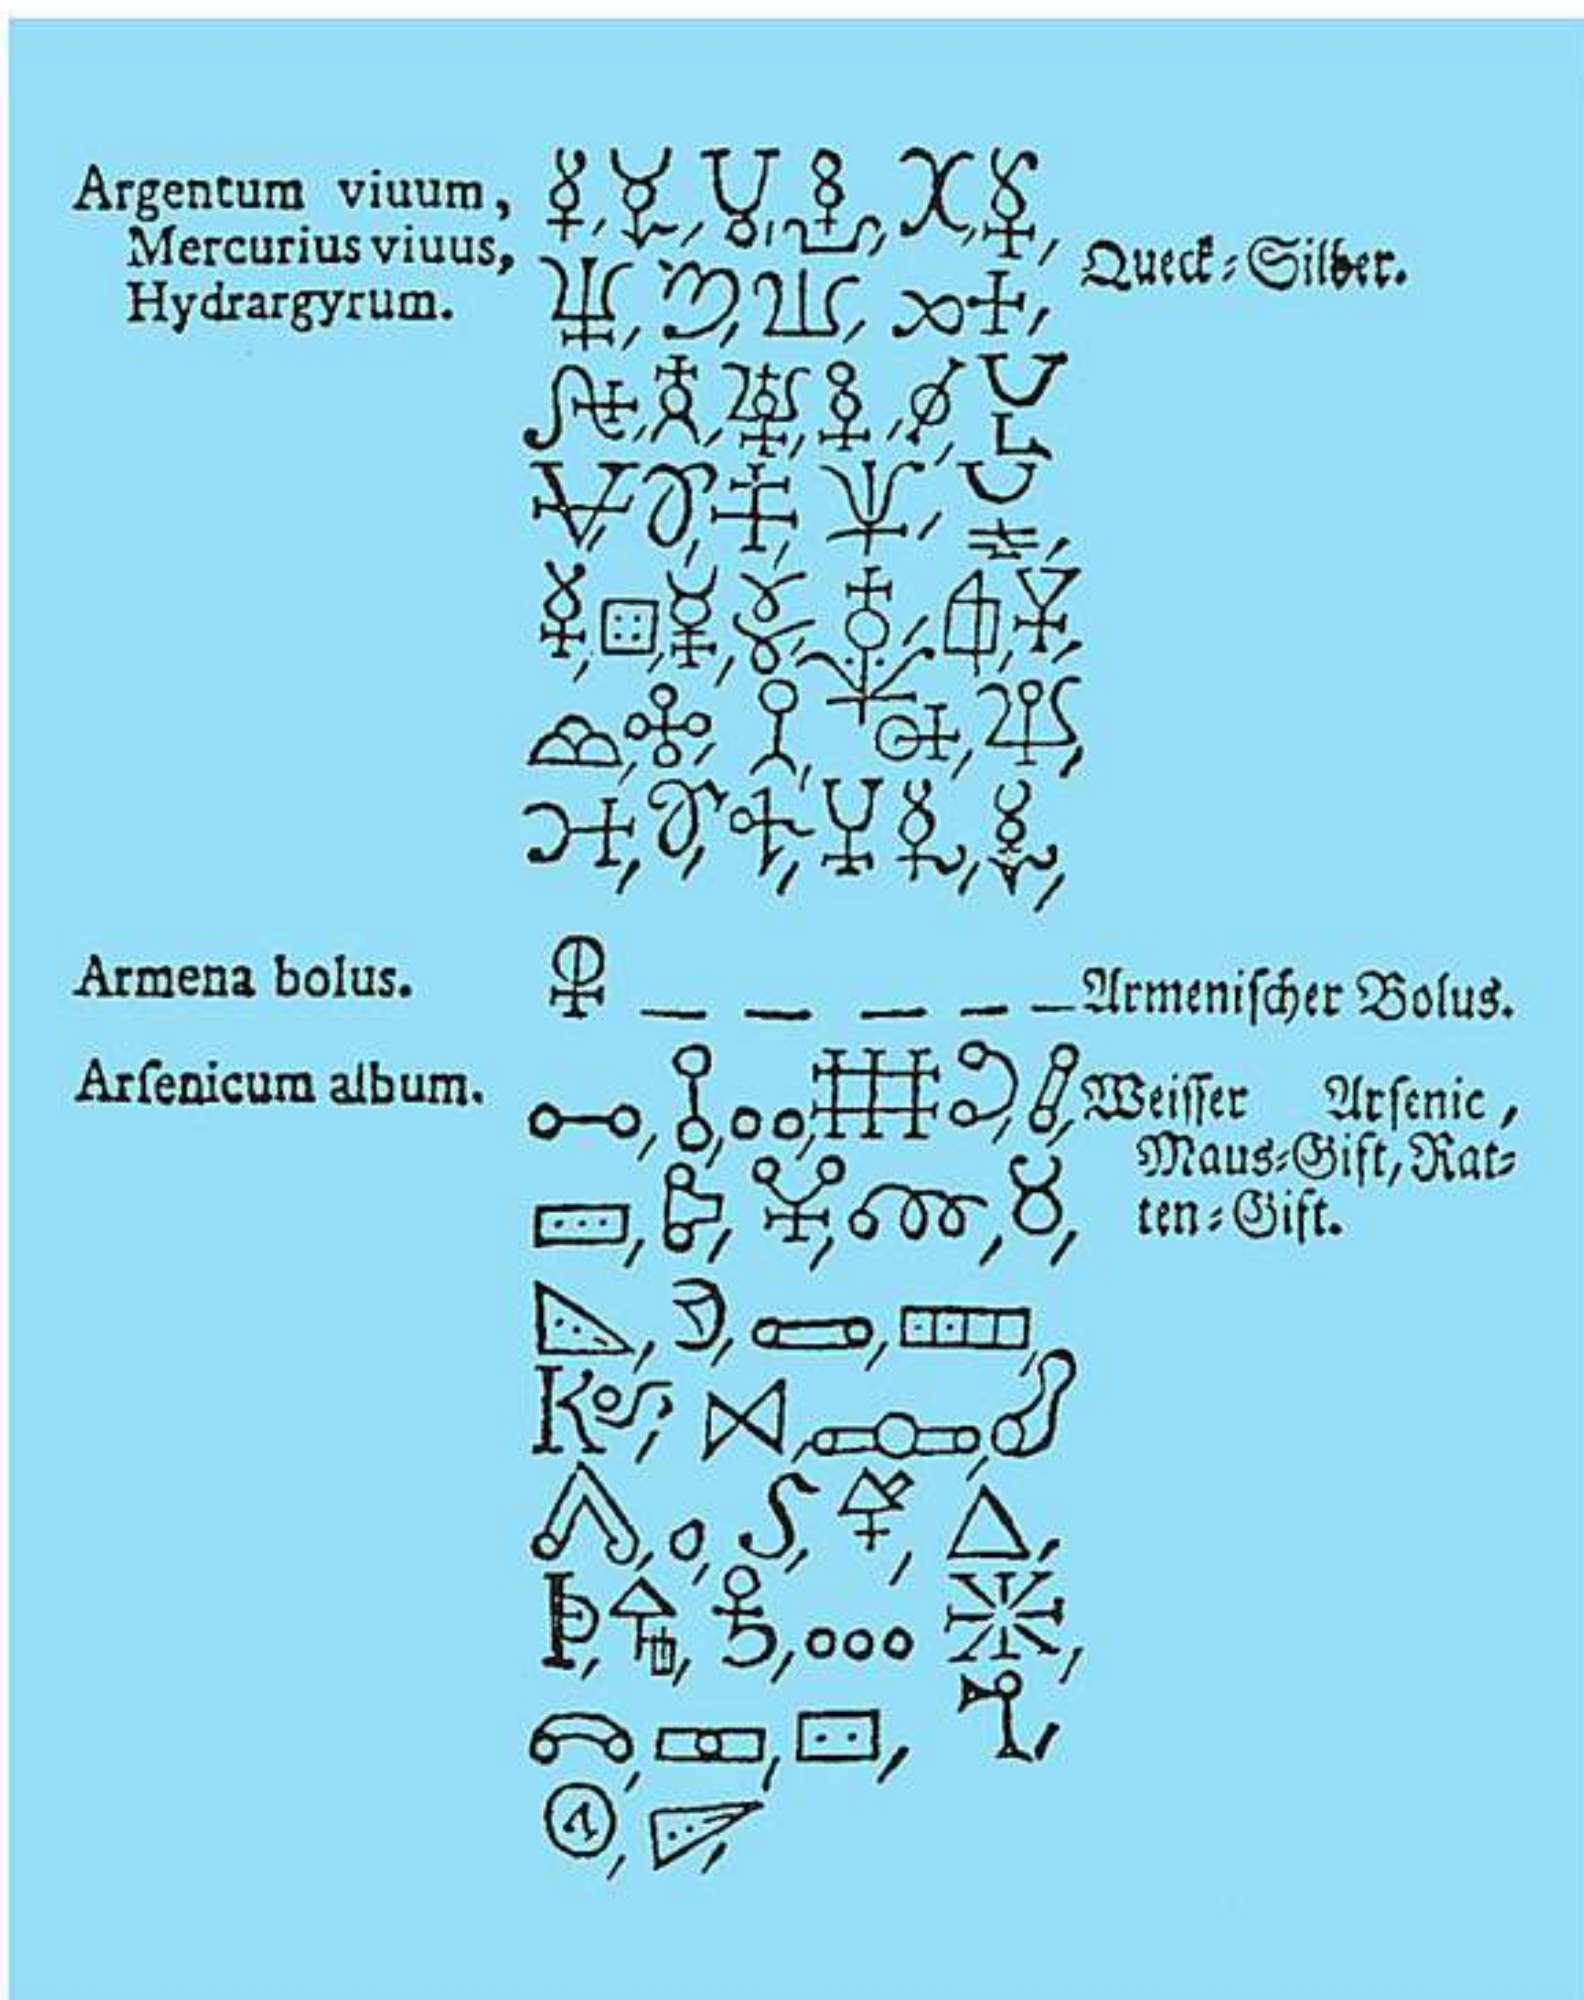 Argentum viuum,
Mercurius viuus,
Hydrargyrum.
Queck⸗Silber.
Armena bolus.
Armeniſcher Bolus.
Arſenicum album.
Weiſſer Arſenic,
Maus⸗Gift, Rat⸗
ten⸗Gift.